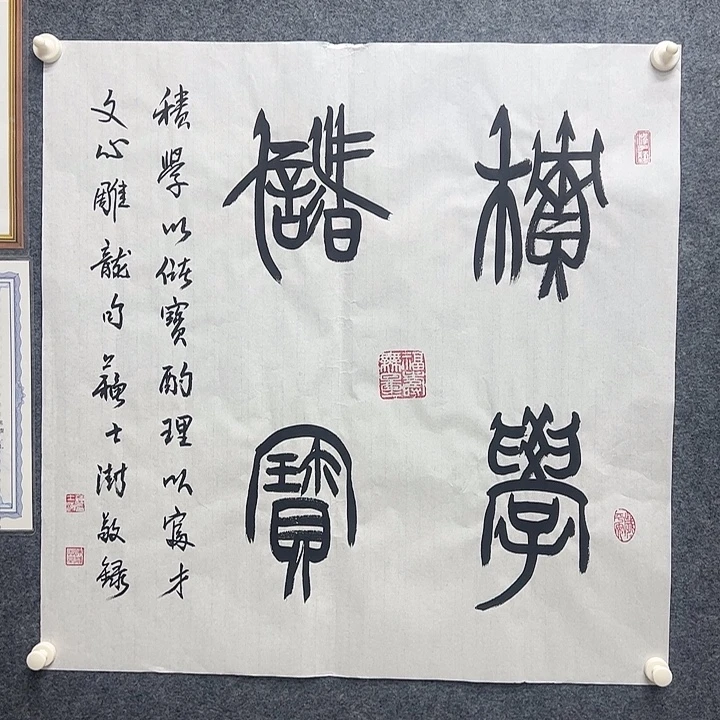 積學
儲寶
積學以儲寶酌理以富才
文心雕龍句蘇士澍敬録